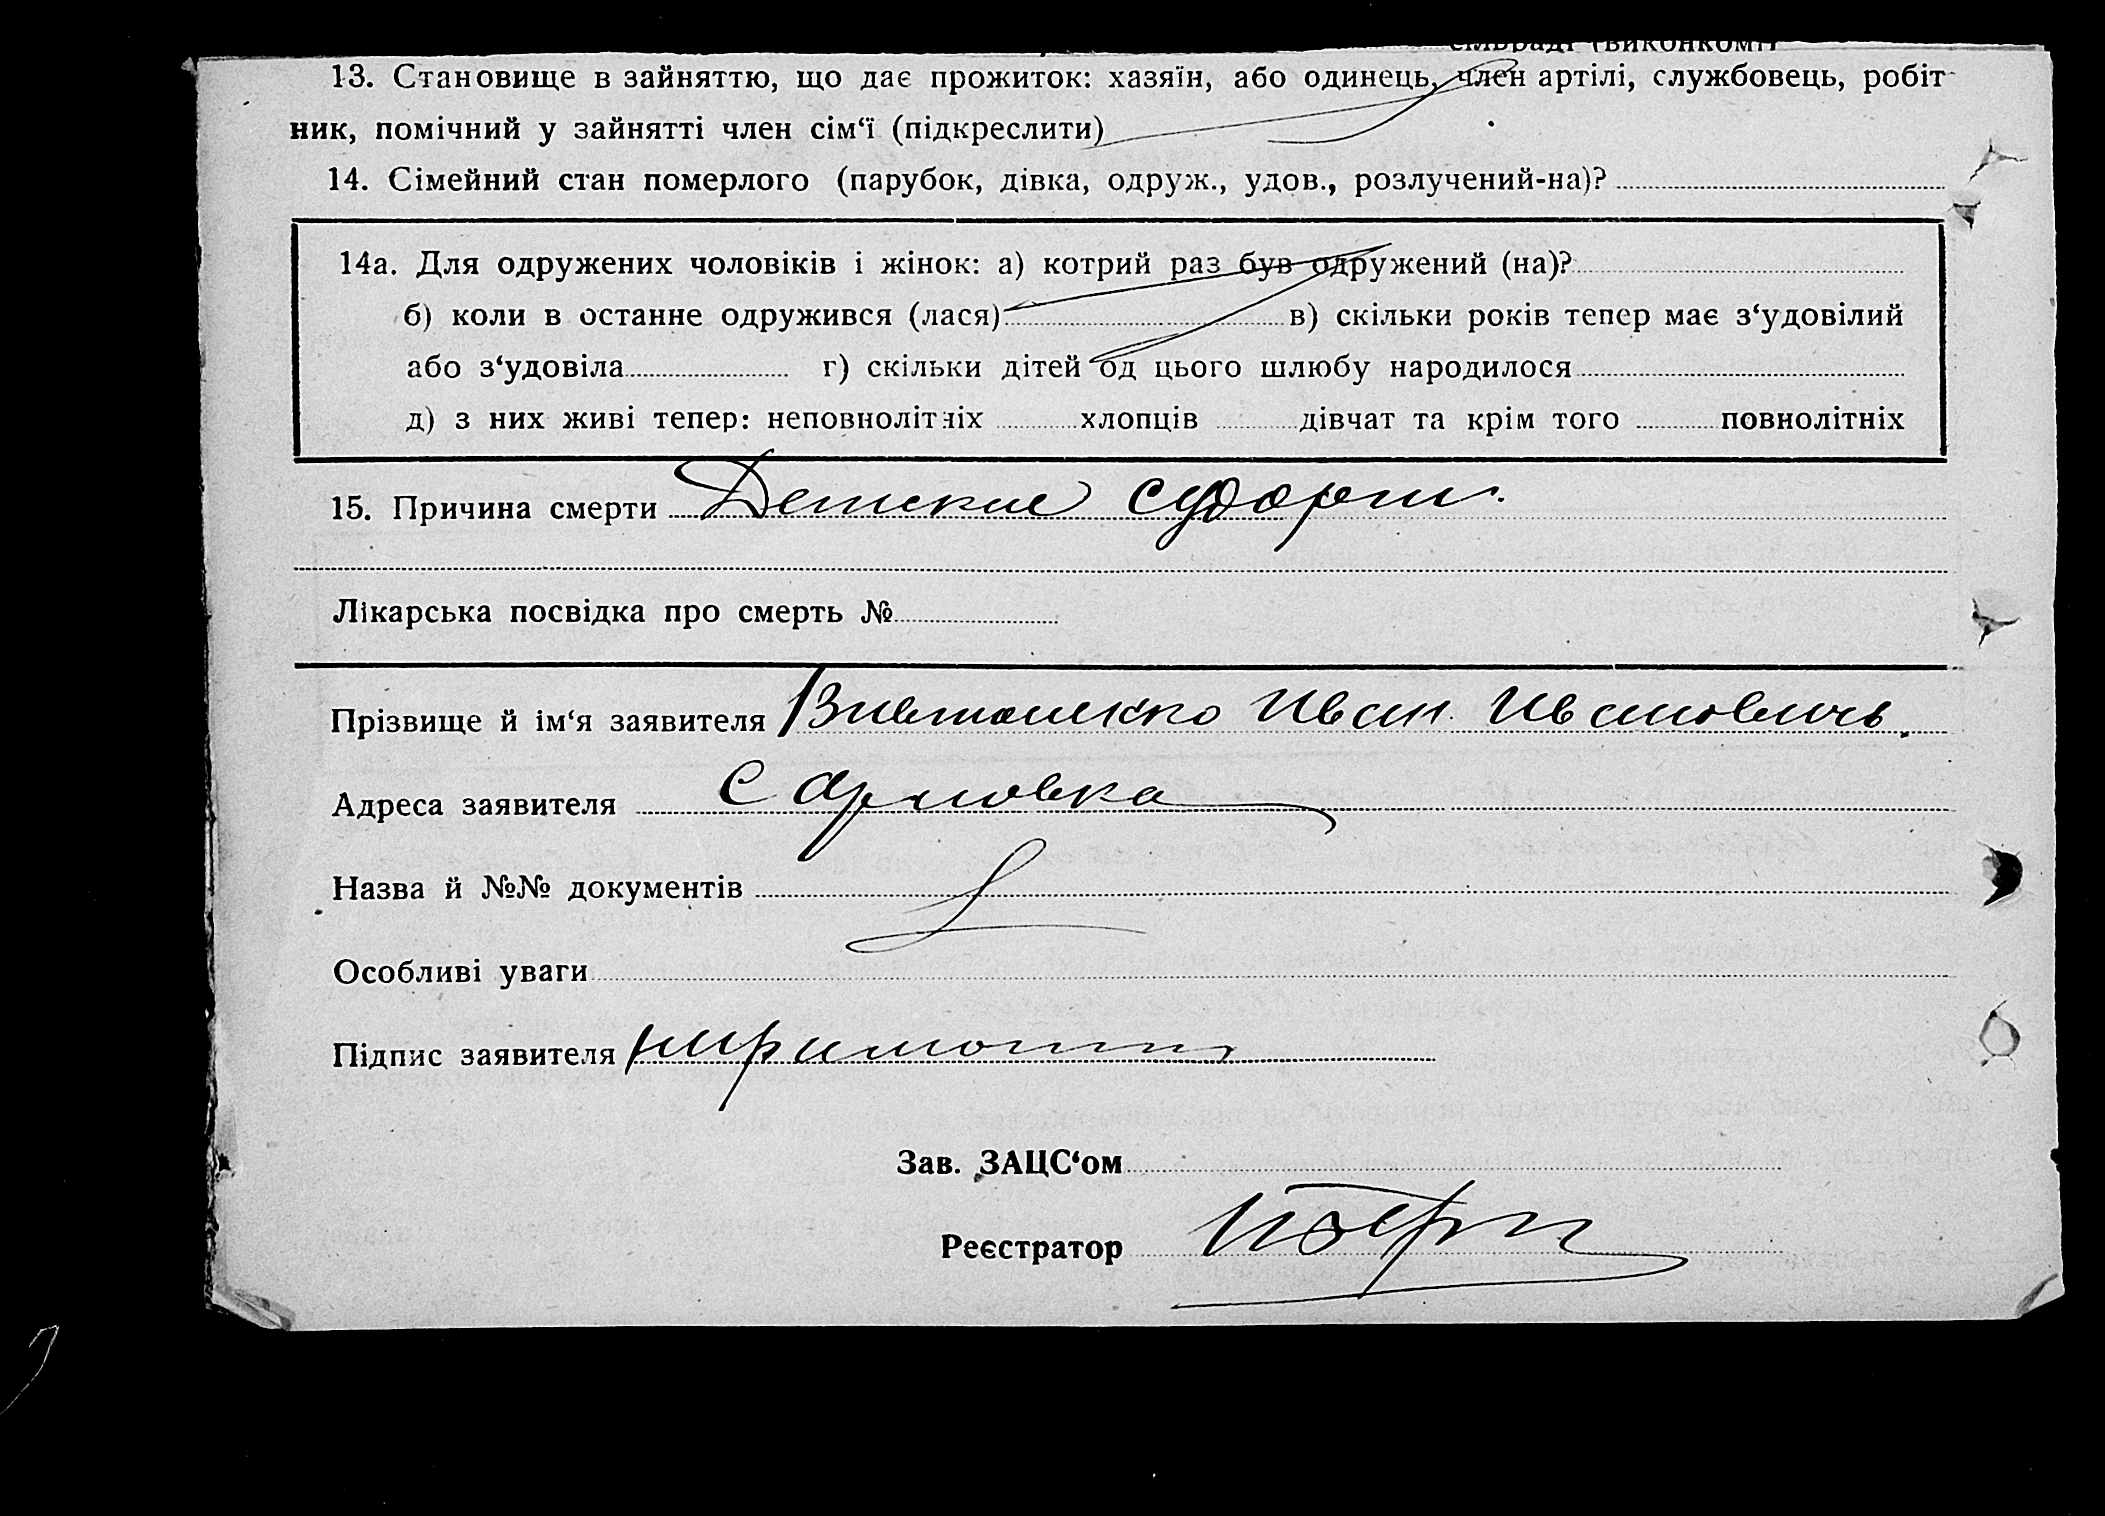 сільраді (виконкомі)
13. Становище в зайняттю, що дає прожиток: хазяїн, або одинець, член артілі, службовець, робіт-
ник, помічний у зайнятті член сім‘ї (підкреслити)
14. Сімейний стан померлого (парубок, дівка, одруж., удов., розлучений-на)?
14а. Для одружених чоловіків і жінок: а) котрий раз був одружений (на)?
б) коли в останне одружився (лася) в) скільки років тепер має з‘удовілий
або з‘удовіла г) скільки дітей од цього шлюбу народилося
д) з них живі тепер: неповнолітніх хлопців дівчат та крім того повнолітніх
15. Причина смерти Детские судорги.
Лікарська посвідка про смерть №
Прізвище й ім‘я заявителя Иван Ивановичь
Адреса заявителя с
Назва й №№ документів
Особливі уваги
Підпис заявителя
Зав. ЗАЦС‘ом
Реєстратор